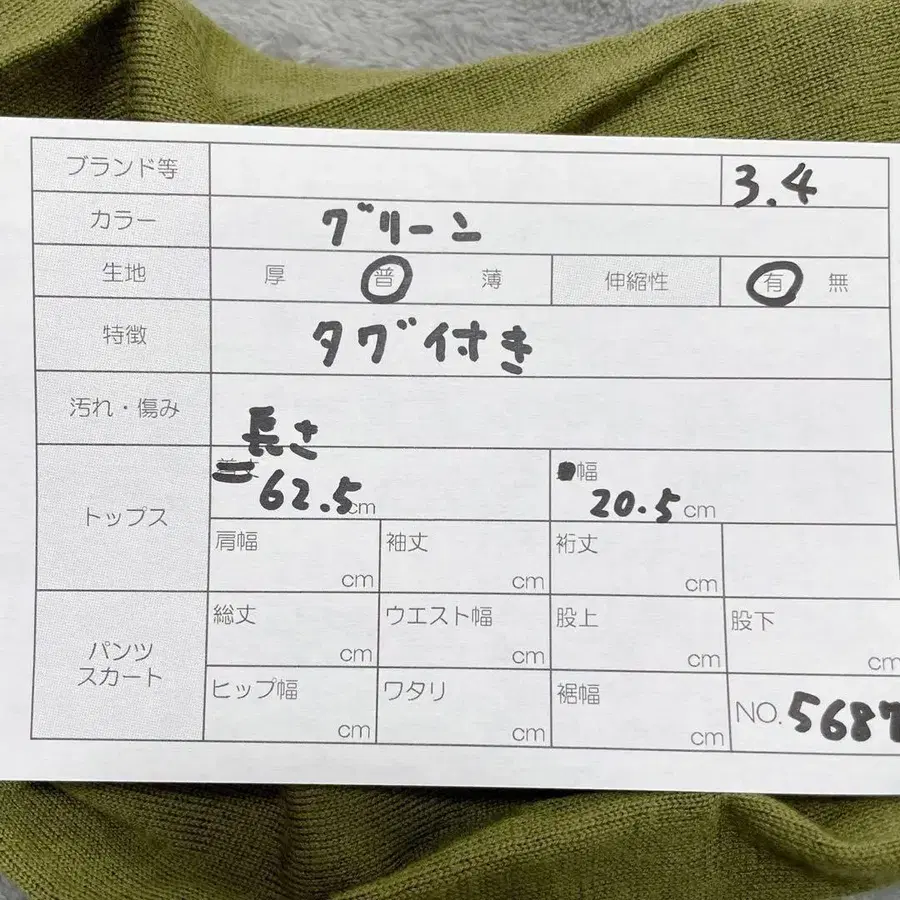 ブランド等 3.4
カラー グリーン
生地 厚 普 薄 伸縮性 有 無
特徴 タグ付き
汚れ・傷み
トップス
長さ
62.5cm
幅
20.5cm
肩幅 cm 袖丈 cm 裄丈 cm
パンツ
スカート
総丈 cm ウエスト幅 cm 股上 cm 股下 cm
ヒップ幅 cm ワタリ cm 裾幅 cm NO.5687